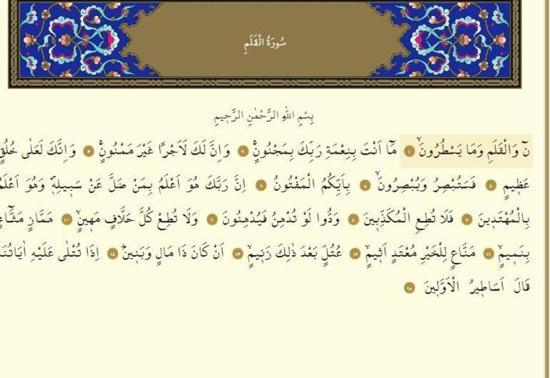 سُورَةُ الْقَلَمِ
بِسْمِ اللهِ الرَّحْمٰنِ الرَّحٖيمِ
نٓ وَالْقَلَمِ وَمَا يَسْطُرُونَۙ ﴿١﴾ مَٓا اَنْتَ بِنِعْمَةِ رَبِّكَ بِمَجْنُونٍۚ ﴿٢﴾ وَاِنَّ لَكَ لَاَجْرًا غَيْرَ مَمْنُونٍۚ ﴿٣﴾ وَاِنَّكَ لَعَلٰى خُلُقٍ
عَظٖيمٍ ﴿٤﴾ فَسَتُبْصِرُ وَيُبْصِرُونَۙ ﴿٥﴾ بِاَيِّكُمُ الْمَفْتُونُ ﴿٦﴾ اِنَّ رَبَّكَ هُوَ اَعْلَمُ بِمَنْ ضَلَّ عَنْ سَبٖيلِهٖۖ وَهُوَ اَعْلَمُ
بِالْمُهْتَدٖينَ ﴿٧﴾ فَلَا تُطِعِ الْمُكَذِّبٖينَ ﴿٨﴾ وَدُّوا لَوْ تُدْهِنُ فَيُدْهِنُونَ ﴿٩﴾ وَلَا تُطِعْ كُلَّ حَلَّافٍ مَهٖينٍۙ ﴿١٠﴾ هَمَّازٍ مَشَّٓاءٍ
بِنَمٖيمٍۙ ﴿١١﴾ مَنَّاعٍ لِلْخَيْرِ مُعْتَدٍ اَثٖيمٍۙ ﴿١٢﴾ عُتُلٍّ بَعْدَ ذٰلِكَ زَنٖيمٍۙ ﴿١٣﴾ اَنْ كَانَ ذَا مَالٍ وَبَنٖينَۜ ﴿١٤﴾ اِذَا تُتْلٰى عَلَيْهِ اٰيَاتُنَا
قَالَ اَسَاطٖيرُ الْاَوَّلٖينَ ﴿١٥﴾